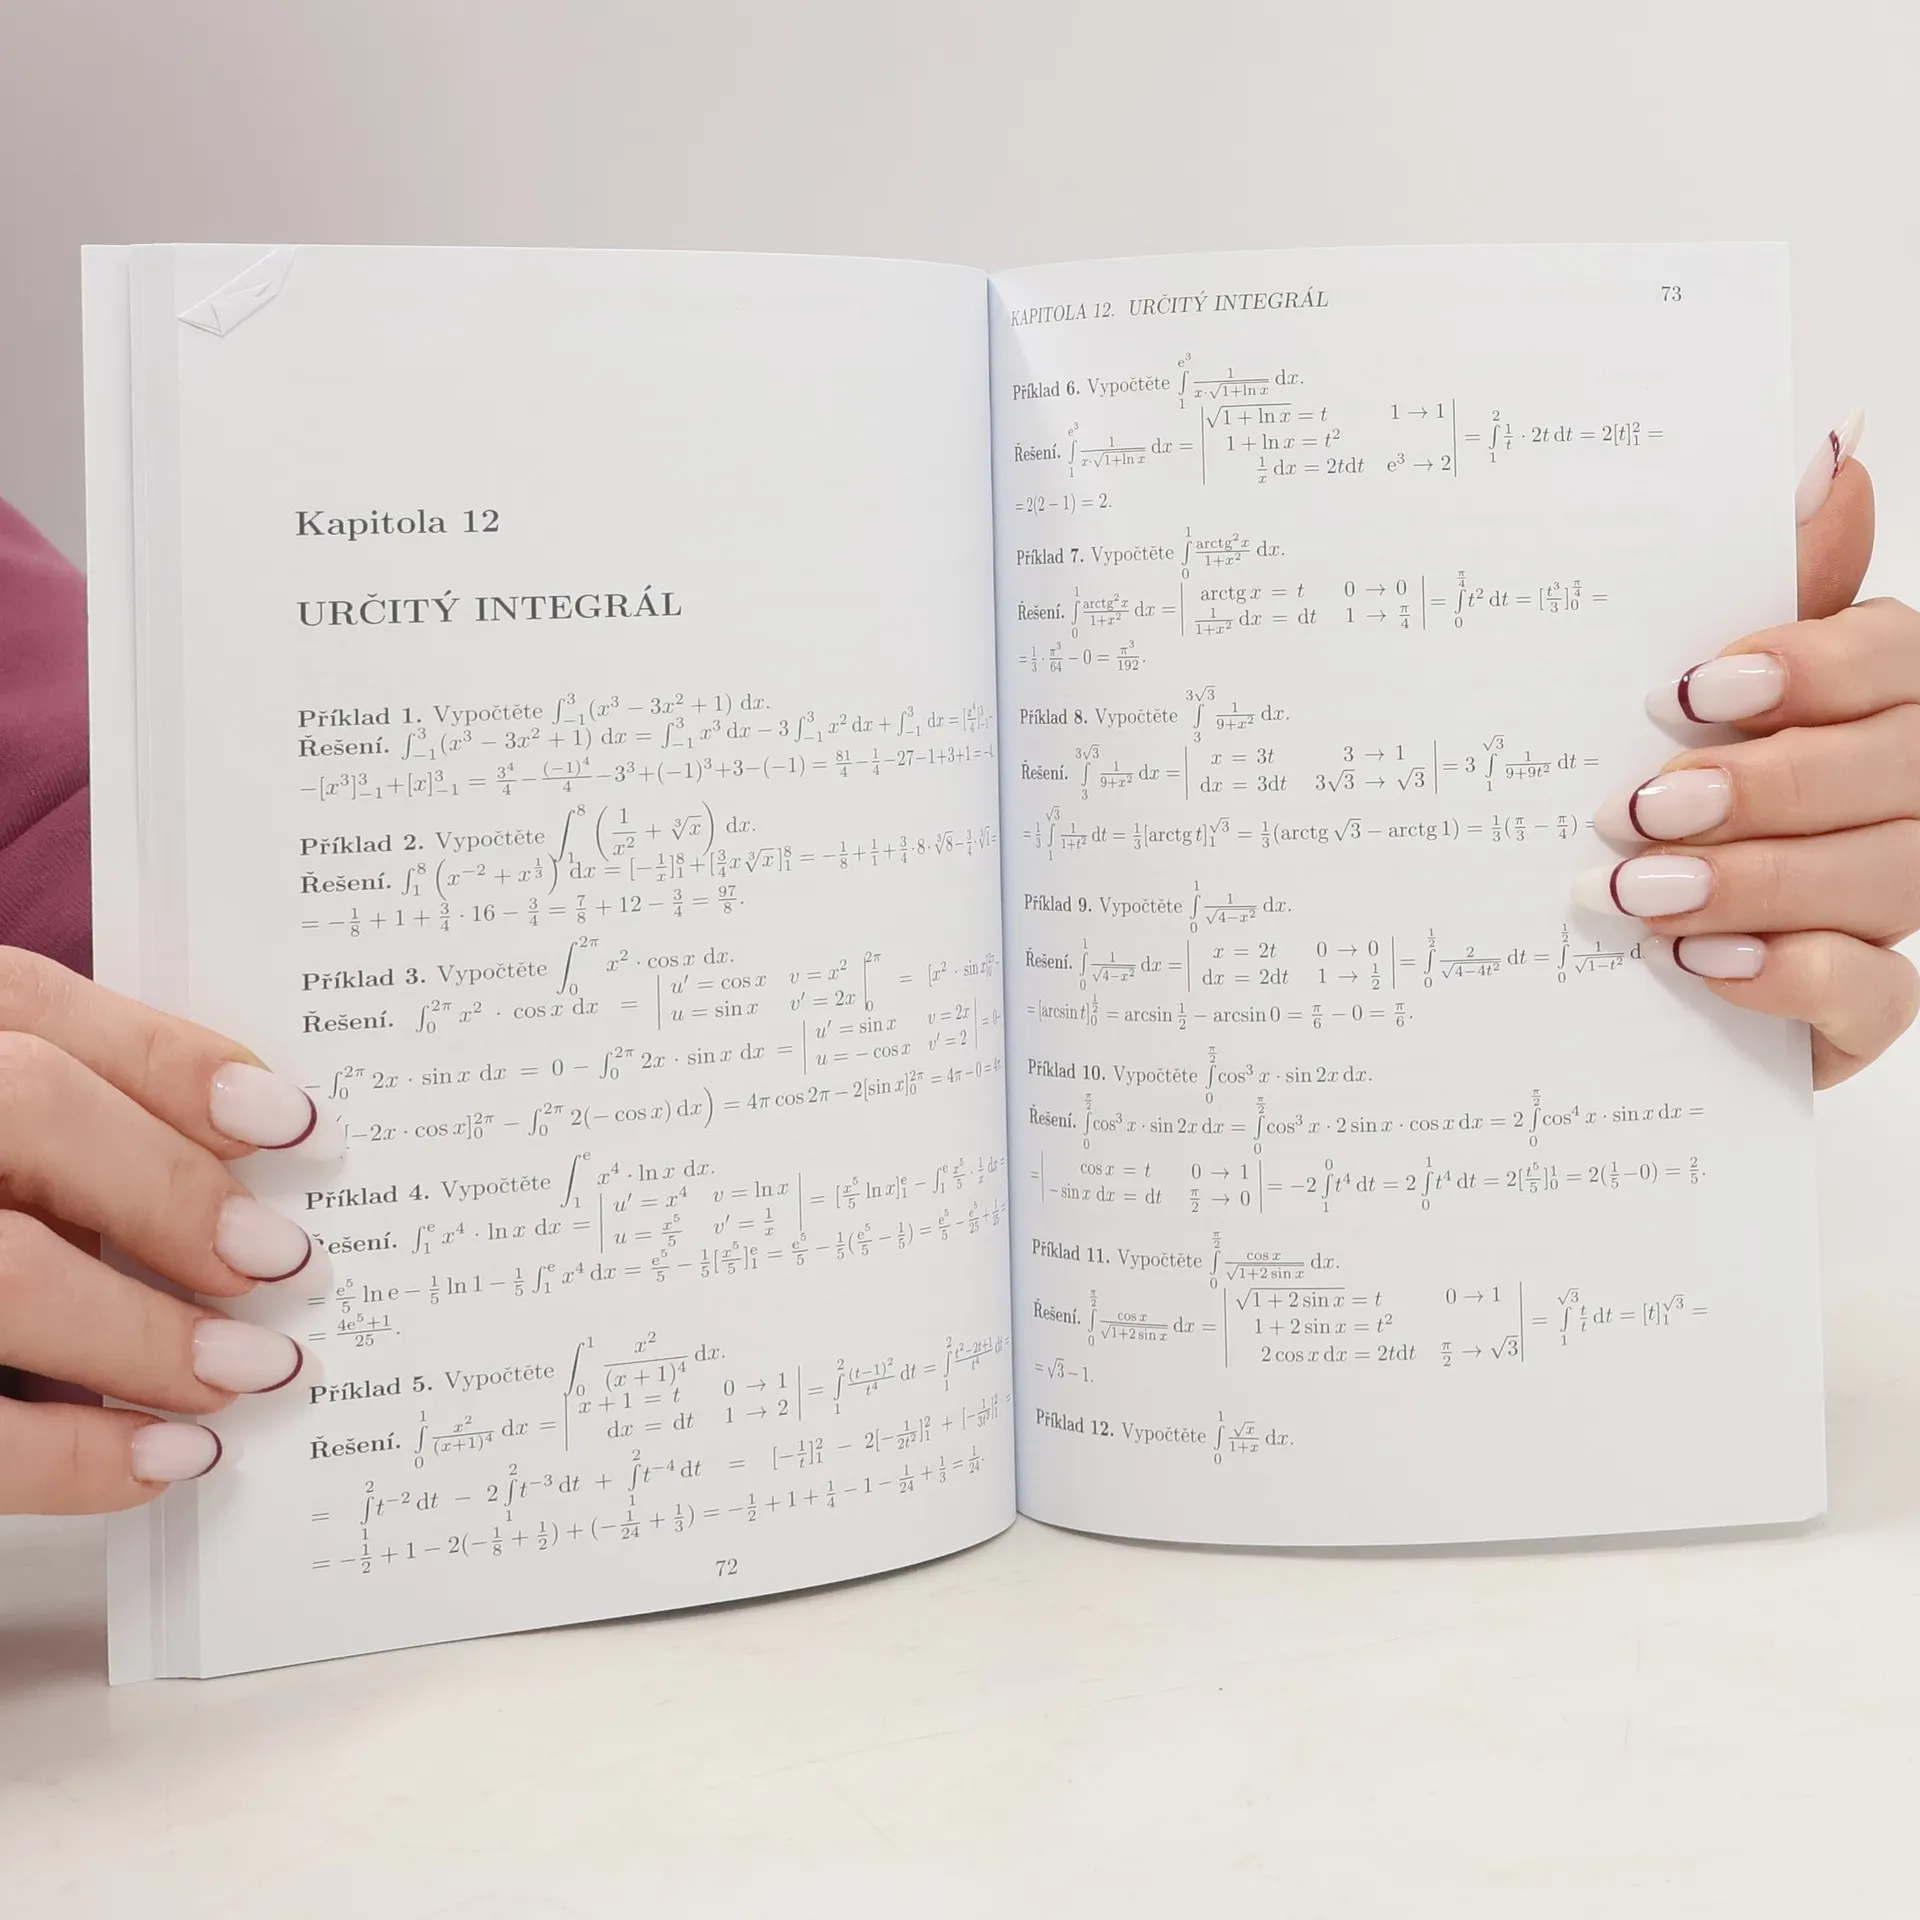 Kapitola 12
URČITÝ INTEGRÁL
Příklad 1. Vypočtěte ∫₋₁³ (x³ − 3x² + 1) dx.
Řešení. ∫₋₁³ (x³ − 3x² + 1) dx = ∫₋₁³ x³ dx − 3 ∫₋₁³ x² dx + ∫₋₁³ dx = [x⁴/4]₋₁³ −
−[x³]₋₁³ + [x]₋₁³ = 3⁴/4 − (−1)⁴/4 − 3³ + (−1)³ + 3 − (−1) = 81/4 − 1/4 − 27 − 1 + 3 + 1 = −4
Příklad 2. Vypočtěte ∫₁⁸ (1/x² + ∛x) dx.
Řešení. ∫₁⁸ (x⁻² + x^(1/3)) dx = [−1/x]₁⁸ + [3/4 x∛x]₁⁸ = −1/8 + 1/1 + 3/4 · 8 · ∛8 − 3/4 · ∛1 =
= −1/8 + 1 + 3/4 · 16 − 3/4 = 7/8 + 12 − 3/4 = 97/8.
Příklad 3. Vypočtěte ∫₀^(2π) x² · cos x dx.
Řešení. ∫₀^(2π) x² · cos x dx = | u′ = cos x v = x² ; u = sin x v′ = 2x |₀^(2π) = [x² · sin x]₀^(2π) −
− ∫₀^(2π) 2x · sin x dx = 0 − ∫₀^(2π) 2x · sin x dx = | u′ = sin x v = 2x ; u = − cos x v′ = 2 | = 0−
[−2x · cos x]₀^(2π) − ∫₀^(2π) 2(− cos x) dx) = 4π cos 2π − 2[sin x]₀^(2π) = 4π − 0 = 4π
Příklad 4. Vypočtěte ∫₁^e x⁴ · ln x dx.
Řešení. ∫₁^e x⁴ · ln x dx = | u′ = x⁴ v = ln x ; u = x⁵/5 v′ = 1/x | = [x⁵/5 ln x]₁^e − ∫₁^e x⁵/5 · 1/x dx =
= e⁵/5 ln e − 1/5 ln 1 − 1/5 ∫₁^e x⁴ dx = e⁵/5 − 1/5[x⁵/5]₁^e = e⁵/5 − 1/5(e⁵/5 − 1/5) = e⁵/5 − e⁵/25 + 1/25 =
= (4e⁵+1)/25.
Příklad 5. Vypočtěte ∫₀¹ x²/(x + 1)⁴ dx.
Řešení. ∫₀¹ x²/(x+1)⁴ dx = | x + 1 = t 0 → 1 ; dx = dt 1 → 2 | = ∫₁² (t−1)²/t⁴ dt = ∫₁² (t²−2t+1)/t⁴ dt =
= ∫₁² t⁻² dt − 2 ∫₁² t⁻³ dt + ∫₁² t⁻⁴ dt = [−1/t]₁² − 2[−1/(2t²)]₁² + [−1/(3t³)]₁² =
= −1/2 + 1 − 2(−1/8 + 1/2) + (−1/24 + 1/3) = −1/2 + 1 + 1/4 − 1 − 1/24 + 1/3 = 1/24.
72
KAPITOLA 12. URČITÝ INTEGRÁL 73
Příklad 6. Vypočtěte ∫₁^(e³) 1/(x·√(1+ln x)) dx.
Řešení. ∫₁^(e³) 1/(x·√(1+ln x)) dx = | √(1 + ln x) = t 1 → 1 ; 1 + ln x = t² ; 1/x dx = 2tdt e³ → 2 | = ∫₁² 1/t · 2t dt = 2[t]₁² =
= 2(2 − 1) = 2.
Příklad 7. Vypočtěte ∫₀¹ arctg²x/(1+x²) dx.
Řešení. ∫₀¹ arctg²x/(1+x²) dx = | arctg x = t 0 → 0 ; 1/(1+x²) dx = dt 1 → π/4 | = ∫₀^(π/4) t² dt = [t³/3]₀^(π/4) =
= 1/3 · π³/64 − 0 = π³/192.
Příklad 8. Vypočtěte ∫₃^(3√3) 1/(9+x²) dx.
Řešení. ∫₃^(3√3) 1/(9+x²) dx = | x = 3t 3 → 1 ; dx = 3dt 3√3 → √3 | = 3 ∫₁^(√3) 1/(9+9t²) dt =
= 1/3 ∫₁^(√3) 1/(1+t²) dt = 1/3[arctg t]₁^(√3) = 1/3(arctg √3 − arctg 1) = 1/3(π/3 − π/4) =
Příklad 9. Vypočtěte ∫₀¹ 1/√(4−x²) dx.
Řešení. ∫₀¹ 1/√(4−x²) dx = | x = 2t 0 → 0 ; dx = 2dt 1 → 1/2 | = ∫₀^(1/2) 2/√(4−4t²) dt = ∫₀^(1/2) 1/√(1−t²) d
= [arcsin t]₀^(1/2) = arcsin 1/2 − arcsin 0 = π/6 − 0 = π/6.
Příklad 10. Vypočtěte ∫₀^(π/2) cos³ x · sin 2x dx.
Řešení. ∫₀^(π/2) cos³ x · sin 2x dx = ∫₀^(π/2) cos³ x · 2 sin x · cos x dx = 2 ∫₀^(π/2) cos⁴ x · sin x dx =
= | cos x = t 0 → 1 ; − sin x dx = dt π/2 → 0 | = −2 ∫₁⁰ t⁴ dt = 2 ∫₀¹ t⁴ dt = 2[t⁵/5]₀¹ = 2(1/5 − 0) = 2/5.
Příklad 11. Vypočtěte ∫₀^(π/2) cos x/√(1+2 sin x) dx.
Řešení. ∫₀^(π/2) cos x/√(1+2 sin x) dx = | √(1 + 2 sin x) = t 0 → 1 ; 1 + 2 sin x = t² ; 2 cos x dx = 2tdt π/2 → √3 | = ∫₁^(√3) t/t dt = [t]₁^(√3) =
= √3 − 1.
Příklad 12. Vypočtěte ∫₀¹ √x/(1+x) dx.